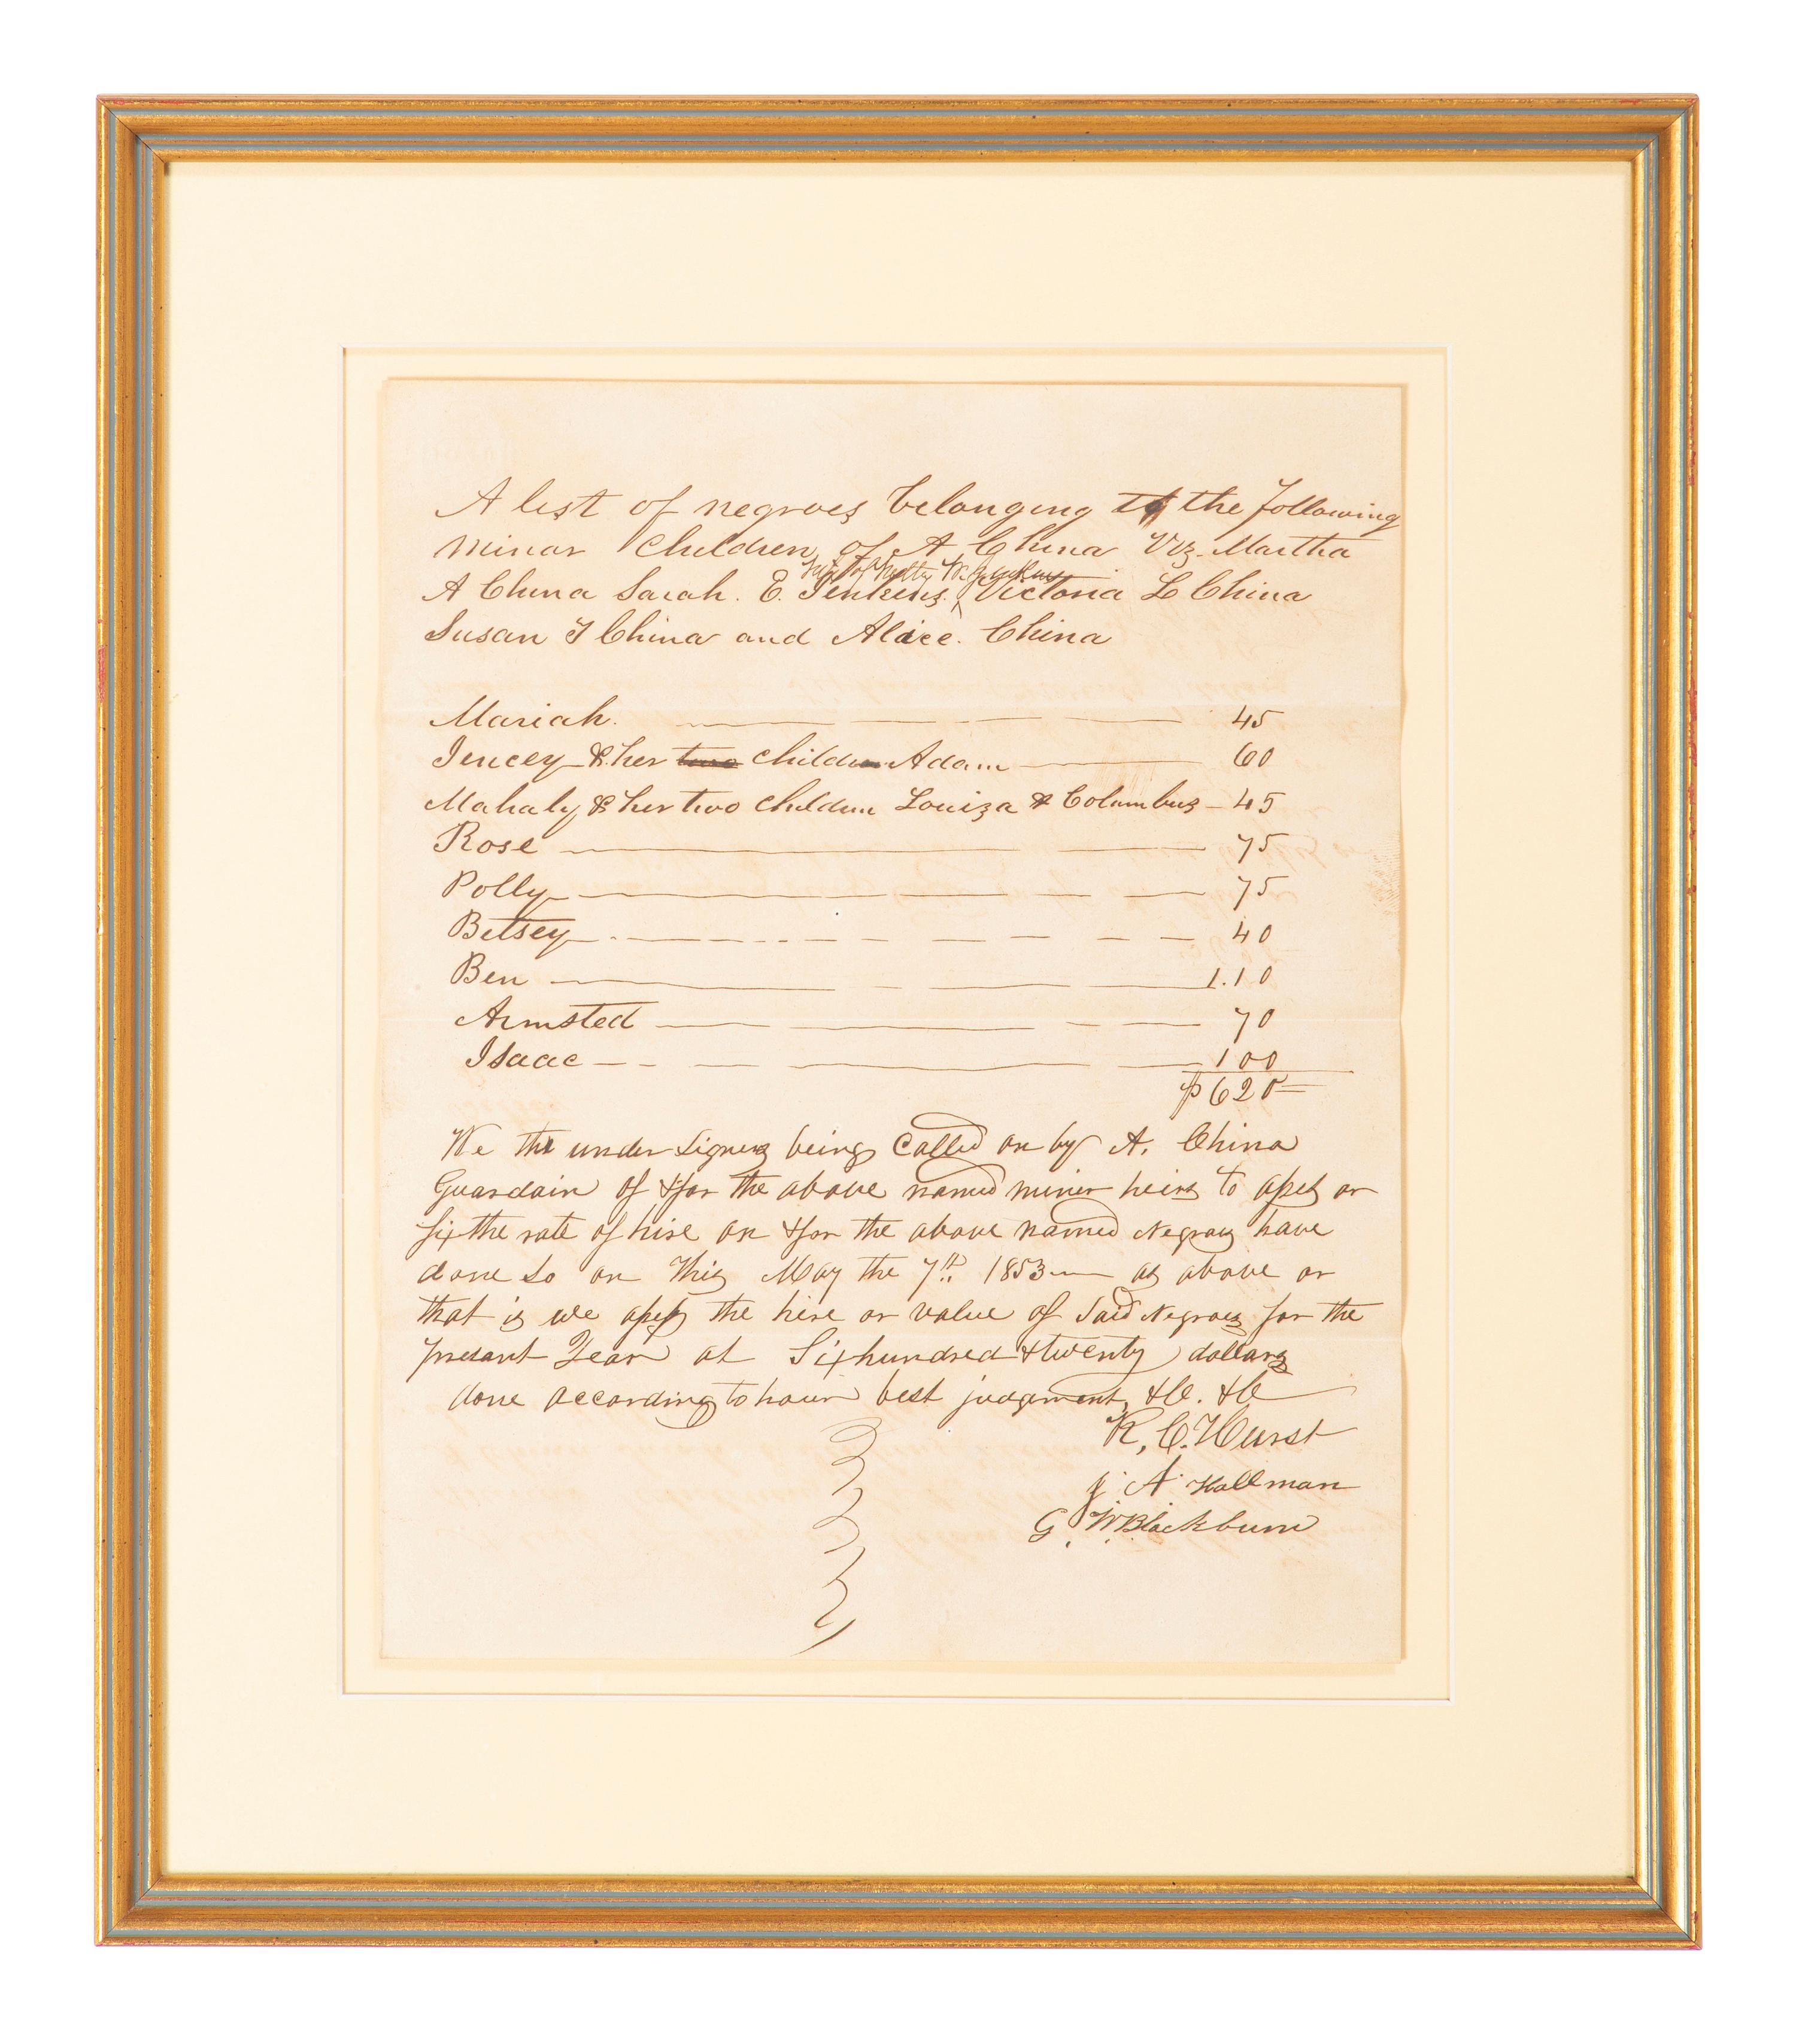 A list of negroes belonging to the following
minor Children of A China Viz. Martha
wife of W. Jenkins
A China Sarah. E. Jenkins. Victoria L China
Susan T China and Alice. China
Mariah. 45
Jencey & her two children Adam 60
Mahaly & her two children Louiza & Columbus 45
Rose 75
Polly 75
Betsey 40
Ben 1.10
Armsted 70
Isaac 100
$620
We the under Signers being Called on by A. China
Guardain of & for the above named miner heirs to asses or
fix the rate of hire on & for the above named Negroes have
done so on this May the 7th 1853 as above or
that is we assess the hire or value of Said Negroes for the
presant Year at Six hundred & twenty dollars
done according to hour best judgment, &C. &C
R, C. Hurst
J A Hallman
G. W. Blackburn